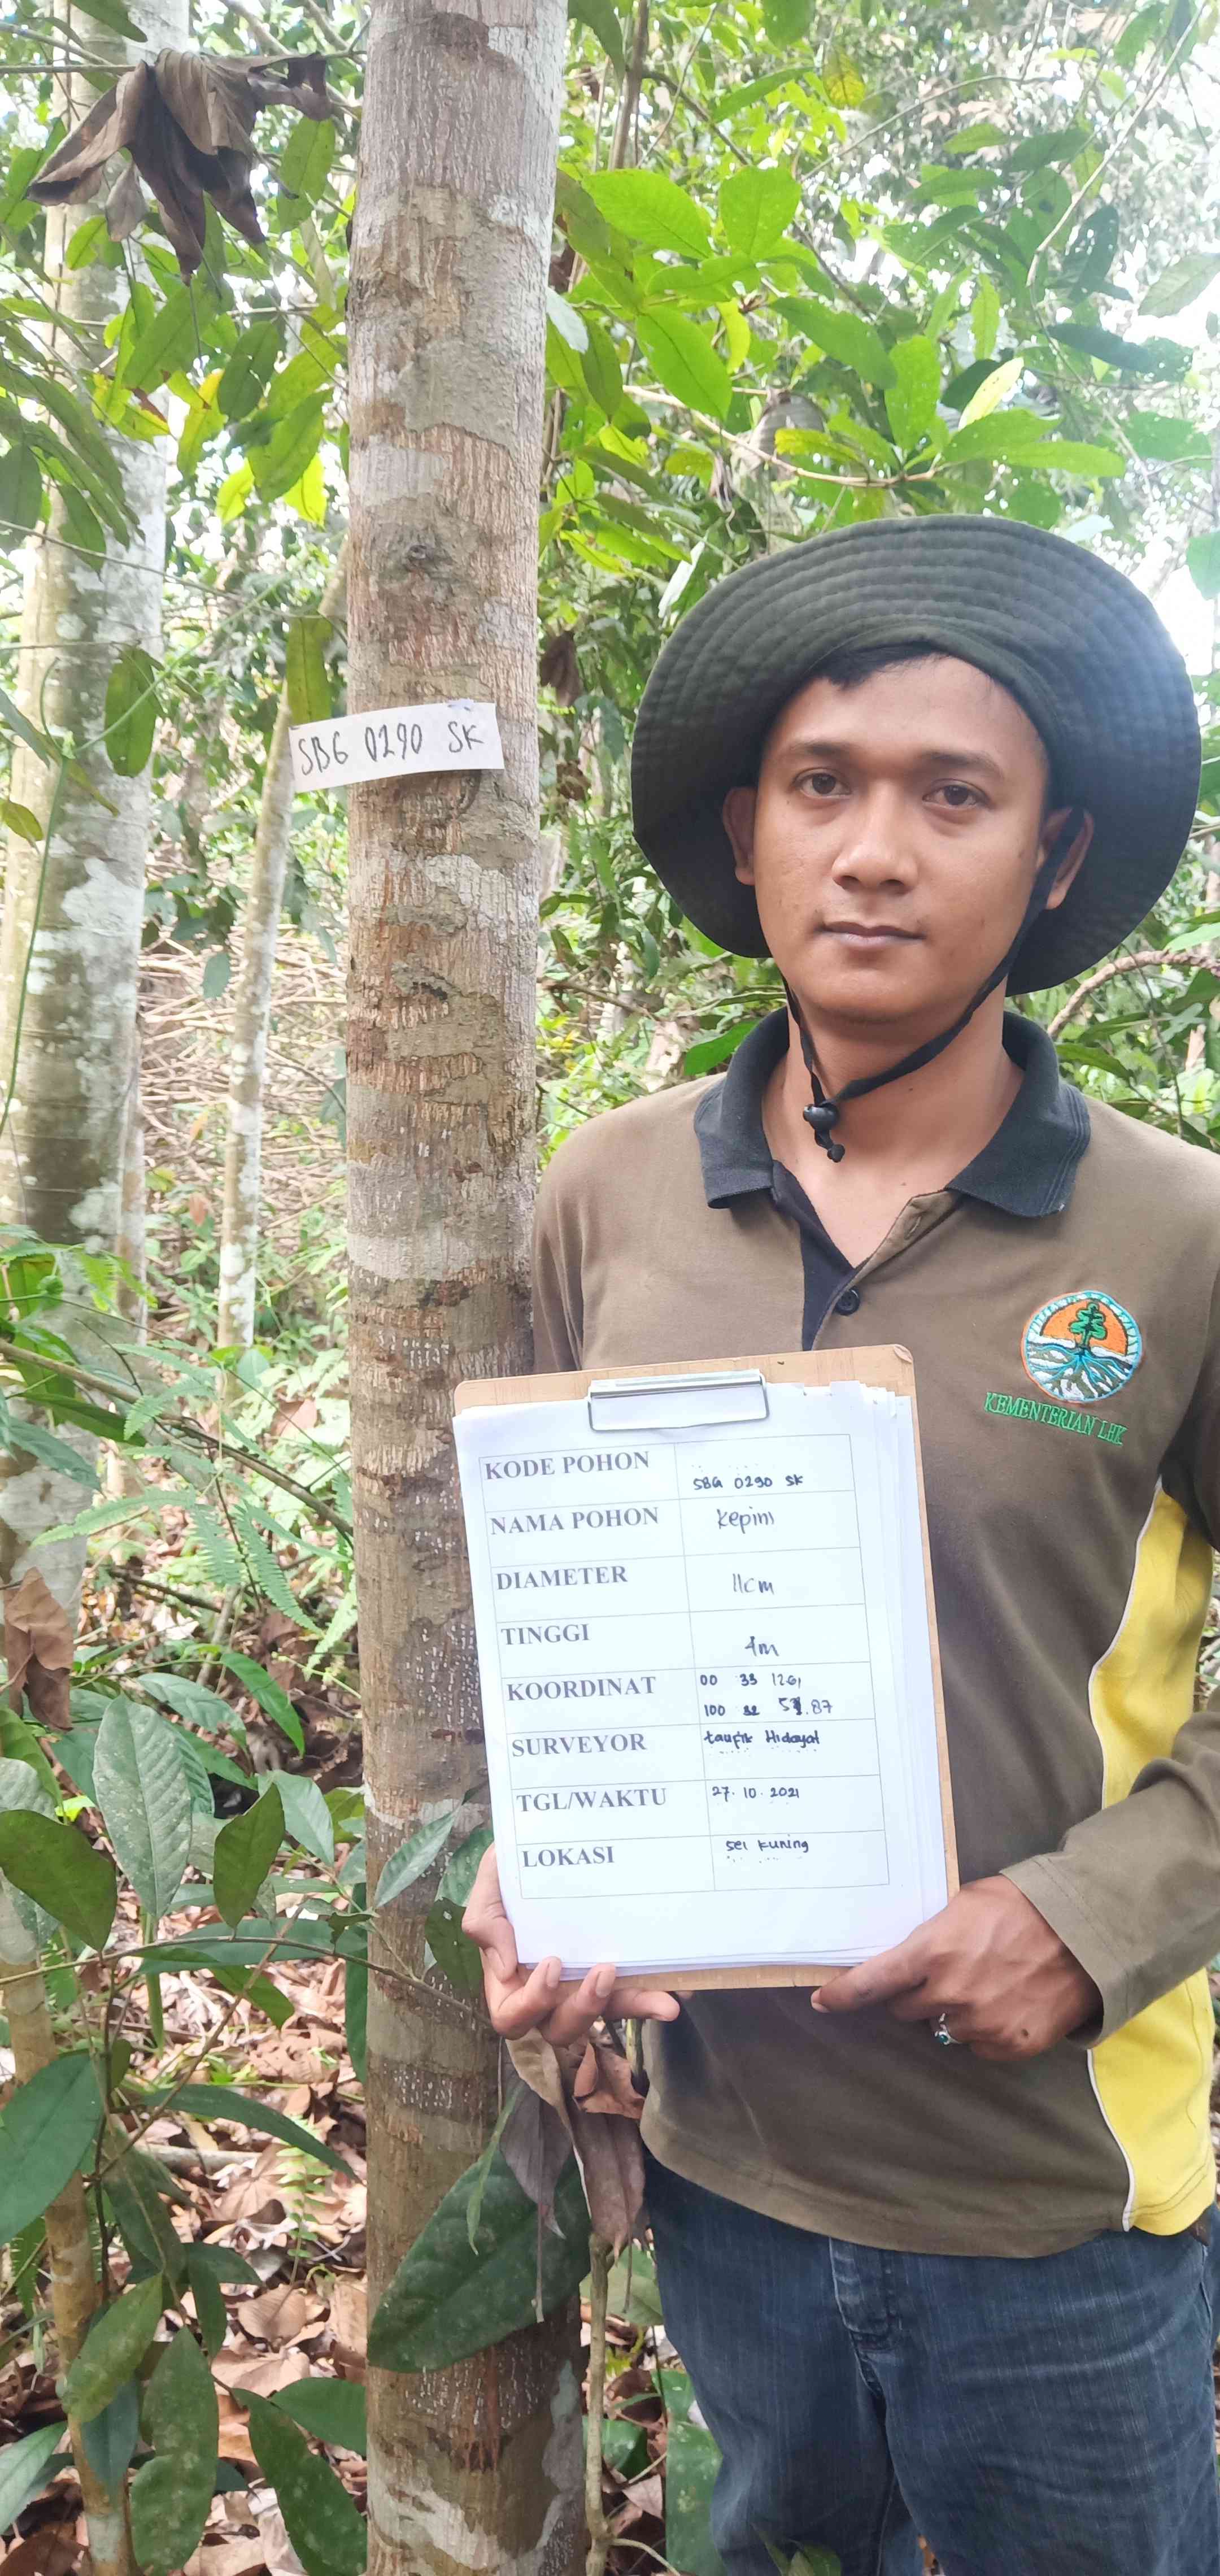 SBG 0290 SK
KEMENTERIAN LHK
KODE POHON
SBG 0290 SK
NAMA POHON
Kepini
DIAMETER
11cm
TINGGI
4m
KOORDINAT
00 33 126,
100 32 .87
SURVEYOR
taufik Hidayat
TGL/WAKTU
27. 10. 2021
LOKASI
sei kuning